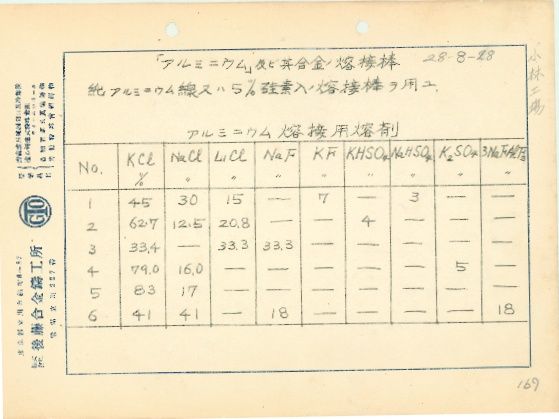 「アルミニウム」及ビ其合金ノ熔接棒 28-8-28
純アルミニウム線又ハ5%硅素入ノ熔接棒ヲ用ユ.
アルミニウム熔接用熔剤
No. KCl NaCl LiCl NaF KF KHSO₄ NaHSO₄ K₂SO₄ 3NaFAlF₃
% 〃 〃 〃 〃 〃 〃 〃 〃
1 45 30 15 — 7 — 3 — —
2 62.7 12.5 20.8 — — 4 — — —
3 33.4 — 33.3 33.3 — — — — —
4 79.0 16.0 — — — — — 5 —
5 83 17 — — — — — — —
6 41 41 — 18 — — — — 18
小林工場
GTO
後藤合金鑄工所
169